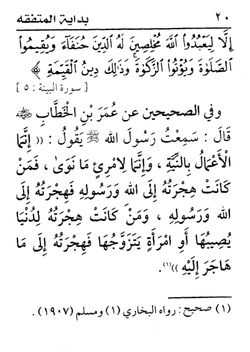 ٢٠ بداية المتفقه
إِلَّا لِيَعْبُدُوا اللَّهَ مُخْلِصِينَ لَهُ الدِّينَ حُنَفَاءَ وَيُقِيمُوا
الصَّلَوٰةَ وَيُؤْتُوا الزَّكَوٰةَ وَذَٰلِكَ دِينُ الْقَيِّمَةِ ﴾
[ سورة البينة : ٥ ]
وفي الصحيحين عن عُمَرَ بْنِ الْخَطَّابِ
ﷺ قَالَ : سَمِعْتُ رَسُولَ الله ﷺ يَقُولُ : (( إِنَّمَا
الْأَعْمَالُ بِالنِّيَّةِ ، وَإِنَّمَا لِامْرِئٍ مَا نَوَى ، فَمَنْ
كَانَتْ هِجْرَتُهُ إِلَى الله وَرَسُولِهِ فَهِجْرَتُهُ إِلَى
الله وَرَسُولِهِ ، وَمَنْ كَانَتْ هِجْرَتُهُ لِدُنْيَا
يُصِيبُهَا أَوِ امْرَأَةٍ يَتَزَوَّجُهَا فَهِجْرَتُهُ إِلَى مَا
هَاجَرَ إِلَيْهِ ))(١).
(١) صحيح : رواه البخاري (١) ومسلم (١٩٠٧).